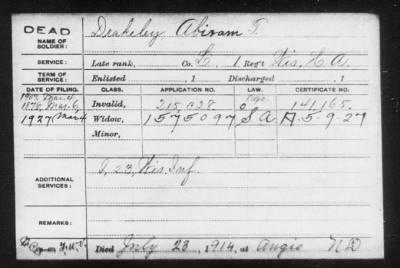 DEAD
NAME OF SOLDIER: Drakeley, Abiram T.
SERVICE: Late rank, Co. L, 1 Reg't Wis. H. A.
TERM OF SERVICE: Enlisted , 1 Discharged , 1
DATE OF FILING. CLASS. APPLICATION NO. LAW. CERTIFICATE NO.
1907 Mar. 4. Age
1876, Mar. 6, Invalid, 215,028. 141,165.
1927 Mar 4 Widow, 1575097 S A A-5-9-27
Minor,
ADDITIONAL SERVICES: I, 23, Wis. Inf.
REMARKS:
Died July 23, 1914, at Angie ND